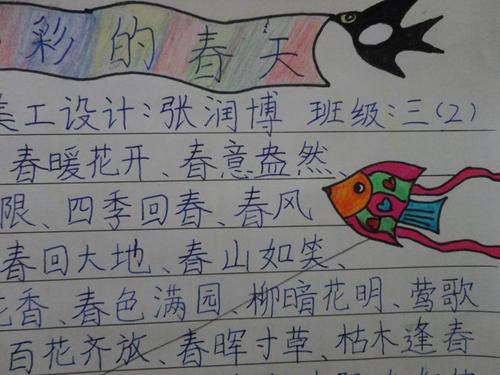 彩的春天
美工设计:张润博 班级:三(2)
春暖花开、春意盎然、
限、四季回春、春风
春回大地、春山如笑、
花香、春色满园、柳暗花明、莺歌
百花齐放、春晖寸草、枯木逢春